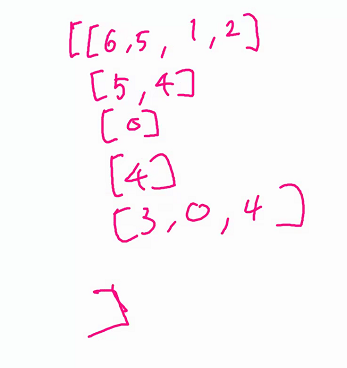 [[6,5, 1,2]
[5,4]
[0]
[4]
[3,0,4]
]